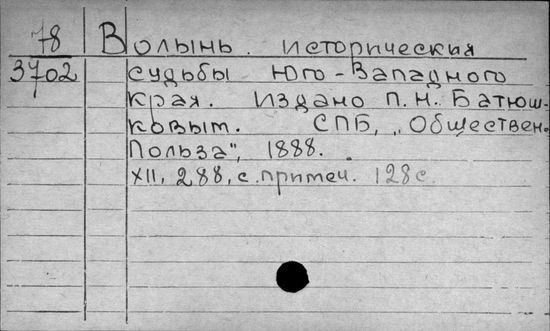 78 Волынь. исторические
3702 судьбы Юго-Западного
края. Издано П.Н. Батюш-
ковым. СПБ, „Обществен.
Польза", 1888.
XII, 288, с.примеч. 128с.